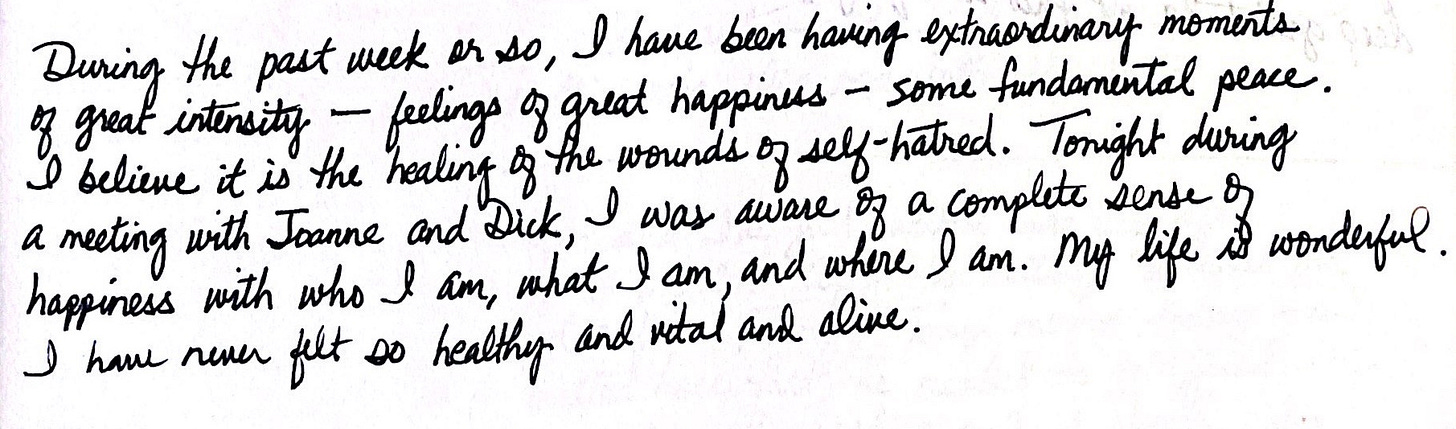 During the past week or so, I have been having extraordinary moments
of great intensity — feelings of great happiness — some fundamental peace.
I believe it is the healing of the wounds of self-hatred. Tonight during
a meeting with Joanne and Dick, I was aware of a complete sense of
happiness with who I am, what I am, and where I am. My life is wonderful.
I have never felt so healthy and vital and alive.